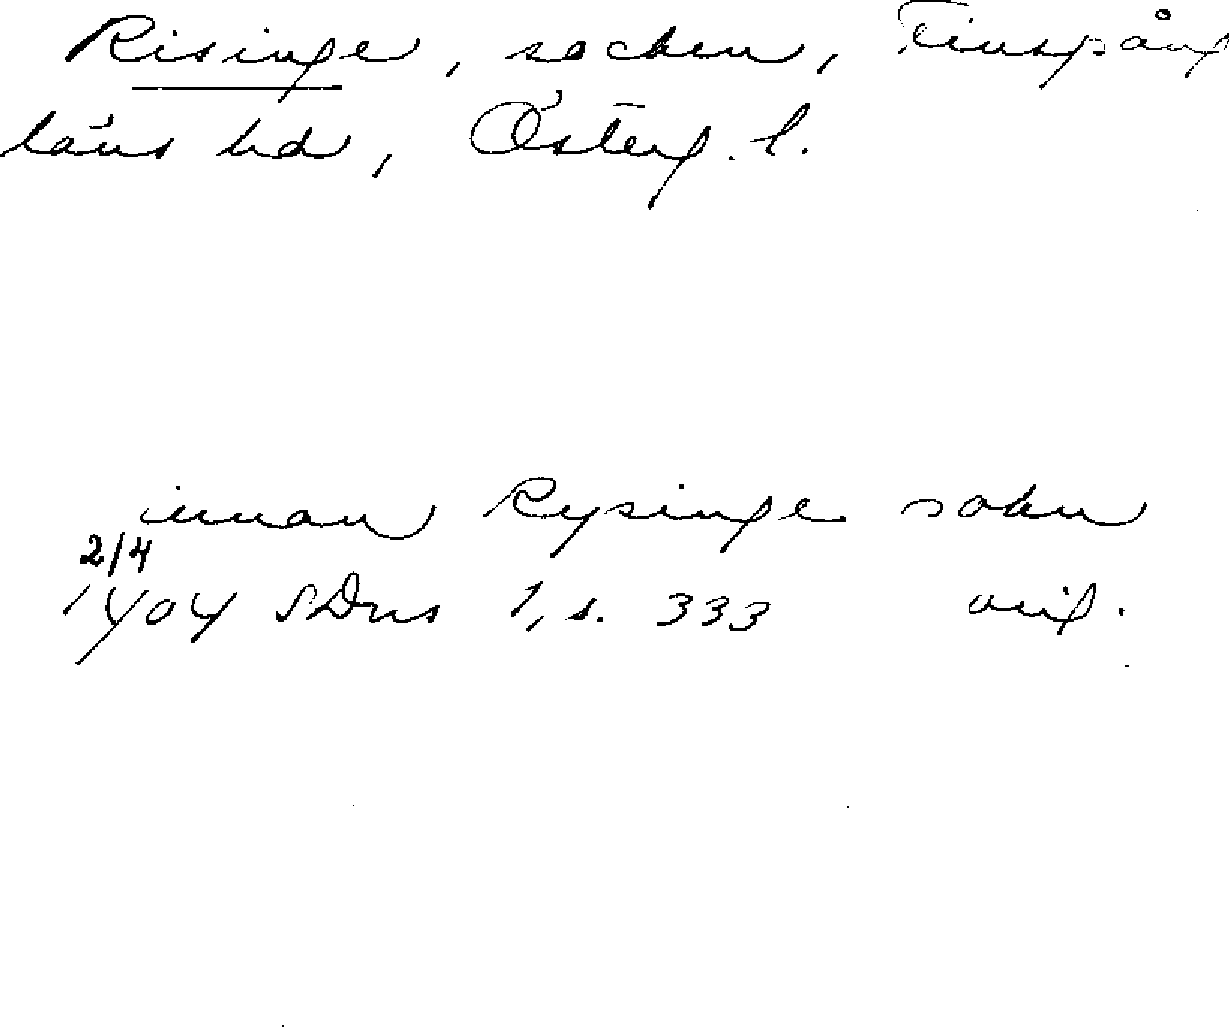 Risinge, socken, Finspång
läns hd, Österg. l.
innan Rysinge sokn
2/4
1404 SDns 1, s. 333 orig.